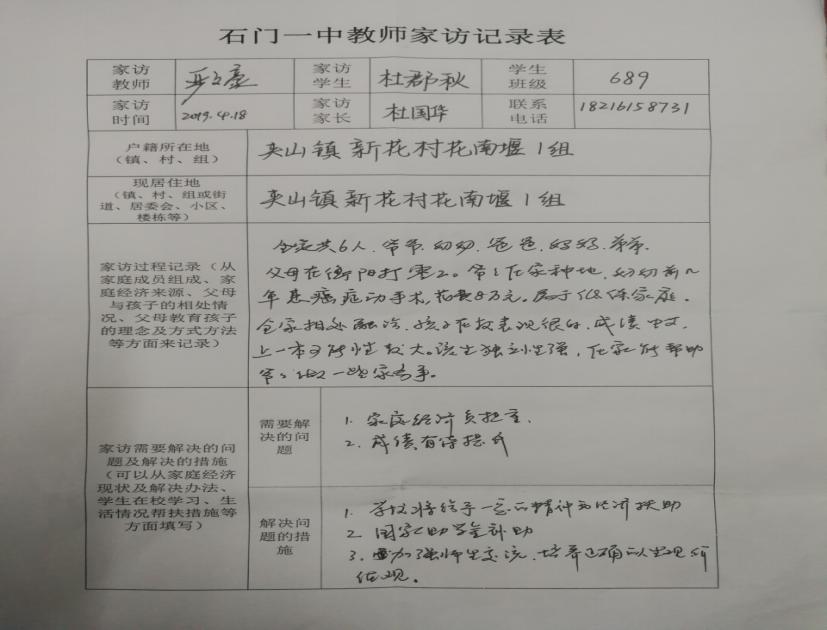 石门一中教师家访记录表
家访教师 家访学生 杜郡秋 学生班级 689
家访时间 2019.4.18 家访家长 杜国华 联系电话 18216158731
户籍所在地
(镇、村、组) 夹山镇新花村花南堰1组
现居住地
(镇、村、组或街
道、居委会、小区、
楼栋等) 夹山镇新花村花南堰1组
家访过程记录(从
家庭成员组成、家
庭经济来源、父母
与孩子的相处情
况、父母教育孩子
的理念及方式方法
等方面来记录)
全家共6人、爷爷、奶奶、爸爸、妈妈、弟弟.
父母在衡阳打零工。爷爷在家种地,奶奶前几
年患癌症动手术,花费8万元。属于低保家庭.
全家相处融洽,孩子在校表现很好,成绩中上
上一本可能性较大。该生独立性强,在家能帮助
爷爷做一些家务事。
家访需要解决的问
题及解决的措施
(可以从家庭经济
现状及解决办法、
学生在校学习、生
活情况帮扶措施等
方面填写)
需要解
决的问
题
1. 家庭经济负担重.
2. 成绩有待提升
解决问
题的措
施
1. 学校将给予一定的精神和经济扶助
2. 国家助学金补助
3. 要加强师生交流、培养正确的人生观价
值观。